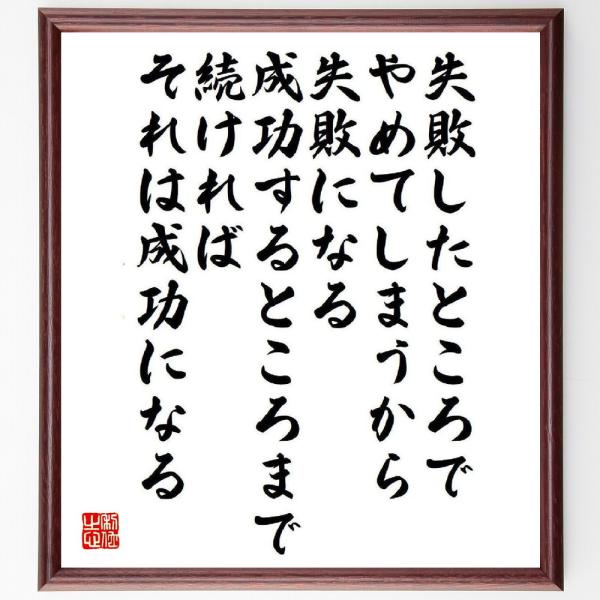 失敗したところで
やめてしまうから
失敗になる
成功するところまで
続ければ
それは成功になる